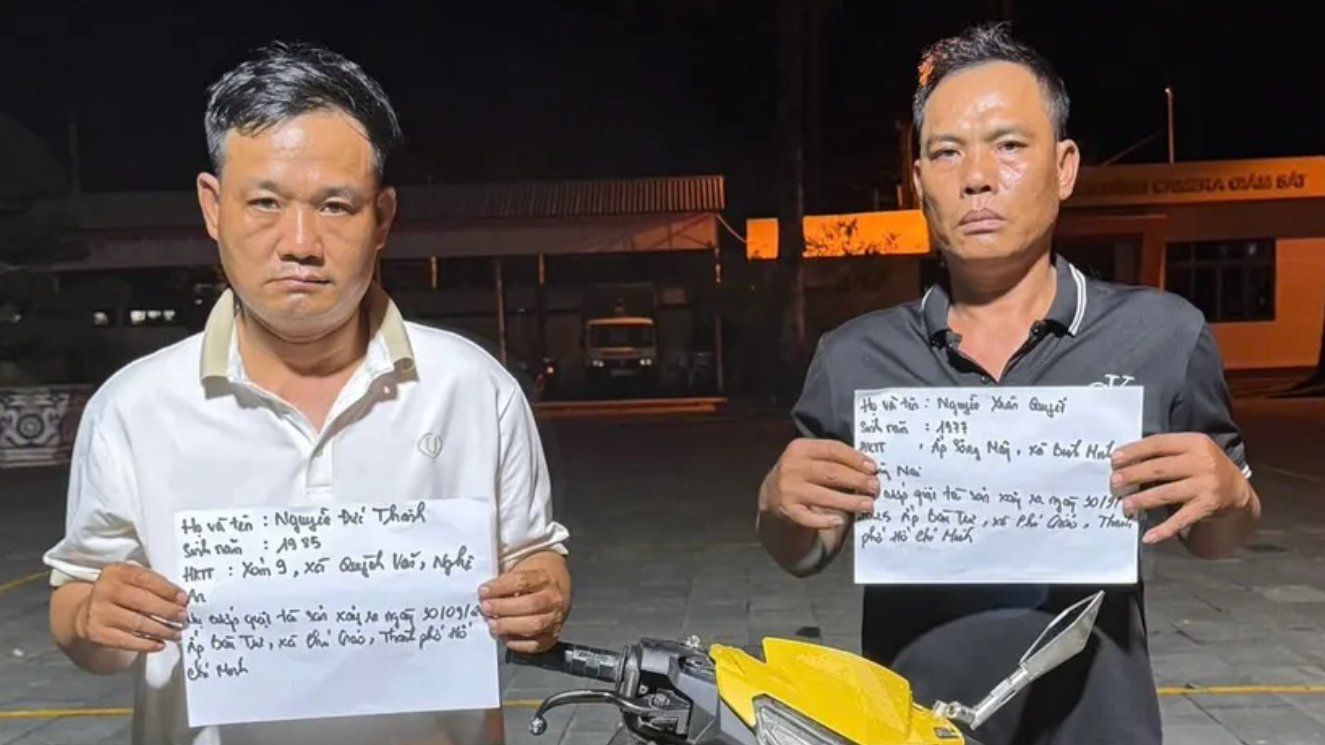 Họ và tên : Nguyễn Đức Thành
Sinh năm : 1985
HKTT : Xóm 9, xã Quỳnh Văn, Nghệ
An
Vụ cướp giật tài sản xảy ra ngày 30/09/
Ấp Bàu Tư, xã Phú Giáo, Thành phố Hồ
Chí Minh
Họ và tên : Nguyễn Xuân Quyết
Sinh năm : 1977
HKTT , Ấp Sông Mây, xã Bình Minh
Nai
cướp giật tài sản xảy ra ngày 30/9/
Ấp Bàu Tư, xã Phú Giáo, Thành
phố Hồ Chí Minh
CAMERA GIÁM SÁT